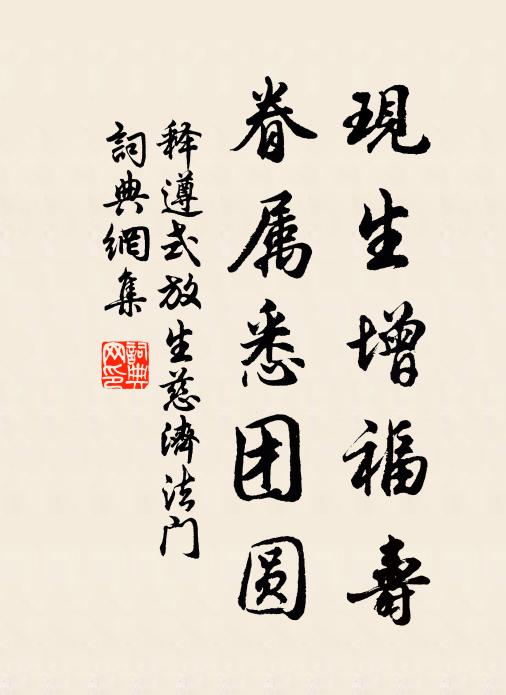 現生增福壽
眷属悉团圆
释遵式放生慈濟法门
詞典網集
詞典网印